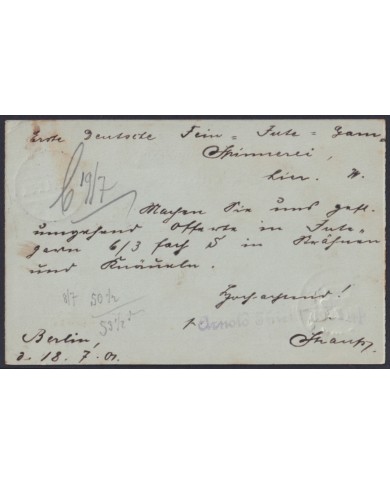 Erste Deutsche Fein = Jute = Garn
Spinnerei,
hier. W.
b 19/7
Machen Sie uns gefl.
umgehend Offerte in Jute-
garn 6/3 fach in Strähnen
und Knäueln.
8/7 50 1/2
53 1/2
Hochachtend!
Arnold
Berlin,
d. 18. 7. 01.